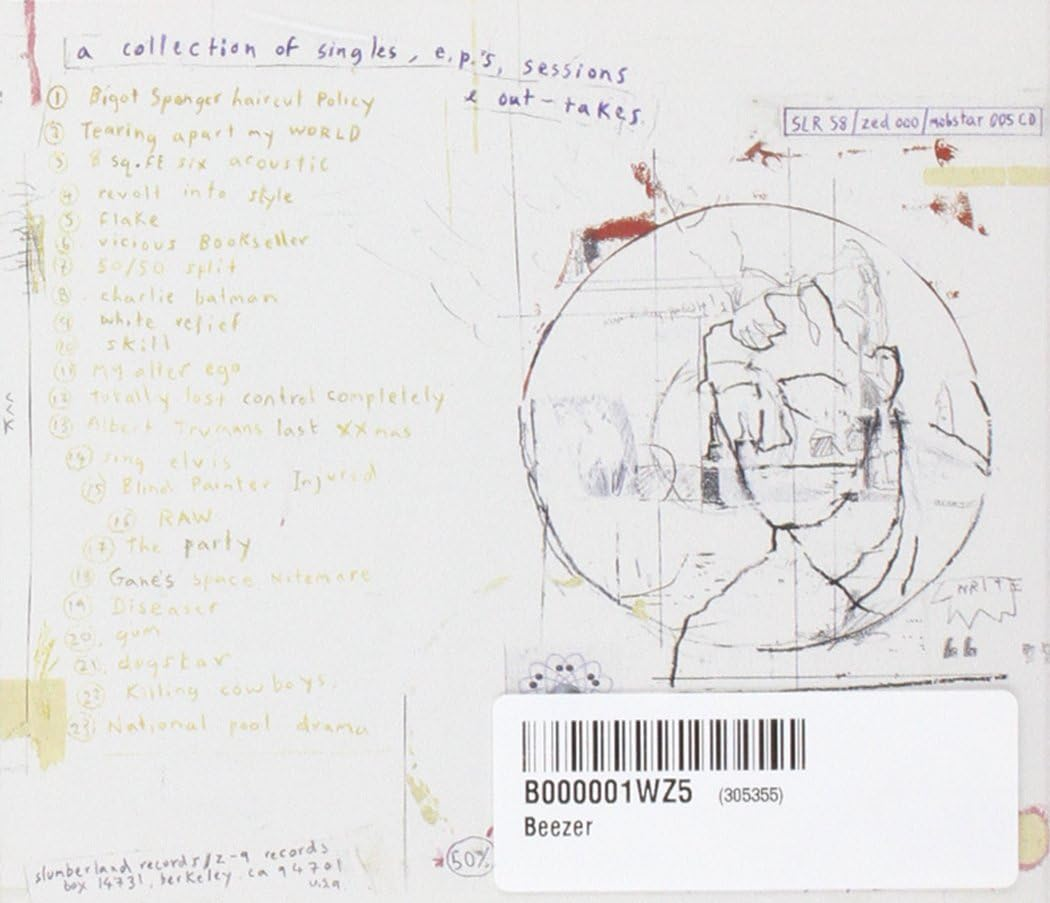 a collection of singles, e.p.'s, sessions
& out-takes.
SLR 58/zed 000/mobstar 005 CD
1 Bigot Sponger haircut Policy
2 Tearing apart my WORLD
3 8 sq.ft six acoustic
4 revolt into style
5 flake
6. vicious Bookseller
7 50/50 split
8. charlie batman
9 white relief
10 skill
11 My alter ego
12 totally lost control completely
13 Albert Trumans last XX mas
14 sing elvis
15 Blind Painter Injured
16 RAW
17 The party
18 Gane's space nitemare
19 Diseaser
20. gum
21. dogstar
22 Killing cowboys.
23 National pool drama
slumberland records/z-9 records
box 14731, berkeley. ca 94701
u.s.a.
50%
B000001WZ5 (305355)
Beezer